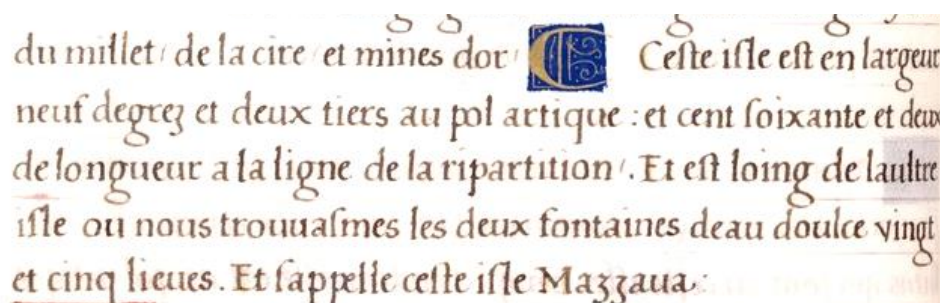 du millet de la cire et mines dor C Ceste isle est en largeur
neuf degrez et deux tiers au pol artique : et cent soixante et deux
de longueur a la ligne de la ripartition . Et est loing de laultre
isle ou nous trouuasmes les deux fontaines deau doulce vingt
et cinq lieues . Et sappelle ceste isle Mazzaua .